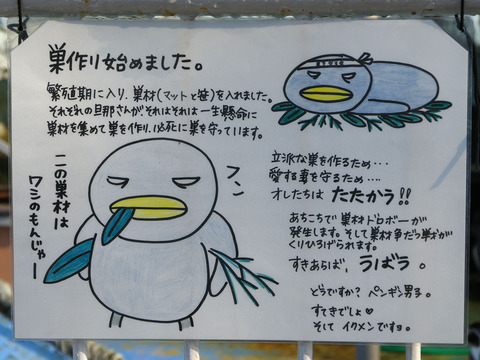 巣作り始めました。
繁殖期に入り、巣材(マットと笹)を入れました。
それぞれの旦那さんが、それはそれは一生懸命に
巣材を集めて巣を作り、必死に巣を守っています。
この巣材は
ワシのもんじゃー
フン
立派な巣を作るため…
愛する妻を守るため…
オレたちは たたかう!!
あちこちで巣材ドロボーが
発生します。そして巣材争だつ戦が
くりひろげられます。
すきあらば、うばう。
どうですか? ペンギン男子。
すてきでしょ♡
そして イクメンですヨ。